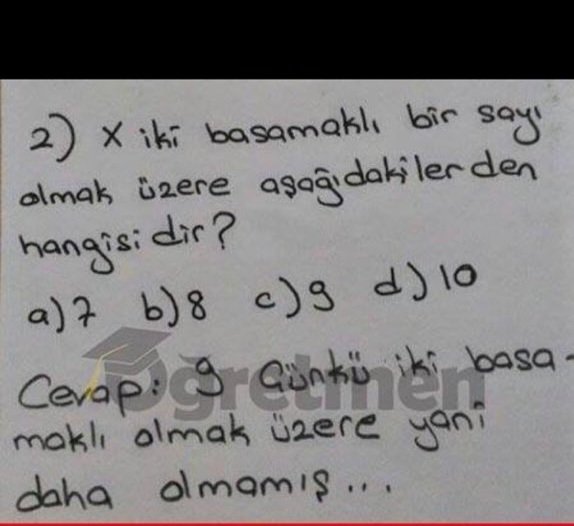 2) X iki basamaklı bir sayı
olmak üzere aşağıdakilerden
hangisidir?
a)7 b)8 c)9 d)10
Cevap: 9 Günkü iki basa-
maklı olmak üzere yani
daha olmamış...
Öğretmen